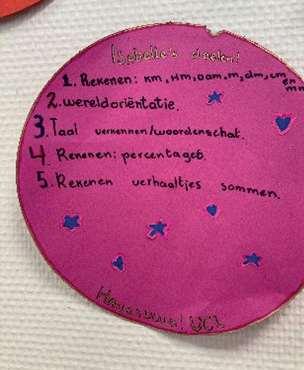 Isabelle's doelen!
1. Rekenen: km, Hm, Dam, m, dm, cm en mm
2. wereldoriëntatie.
3. Taal verkennen/woordenschat.
4. Rekenen: percentages.
5. Rekenen verhaaltjes sommen.